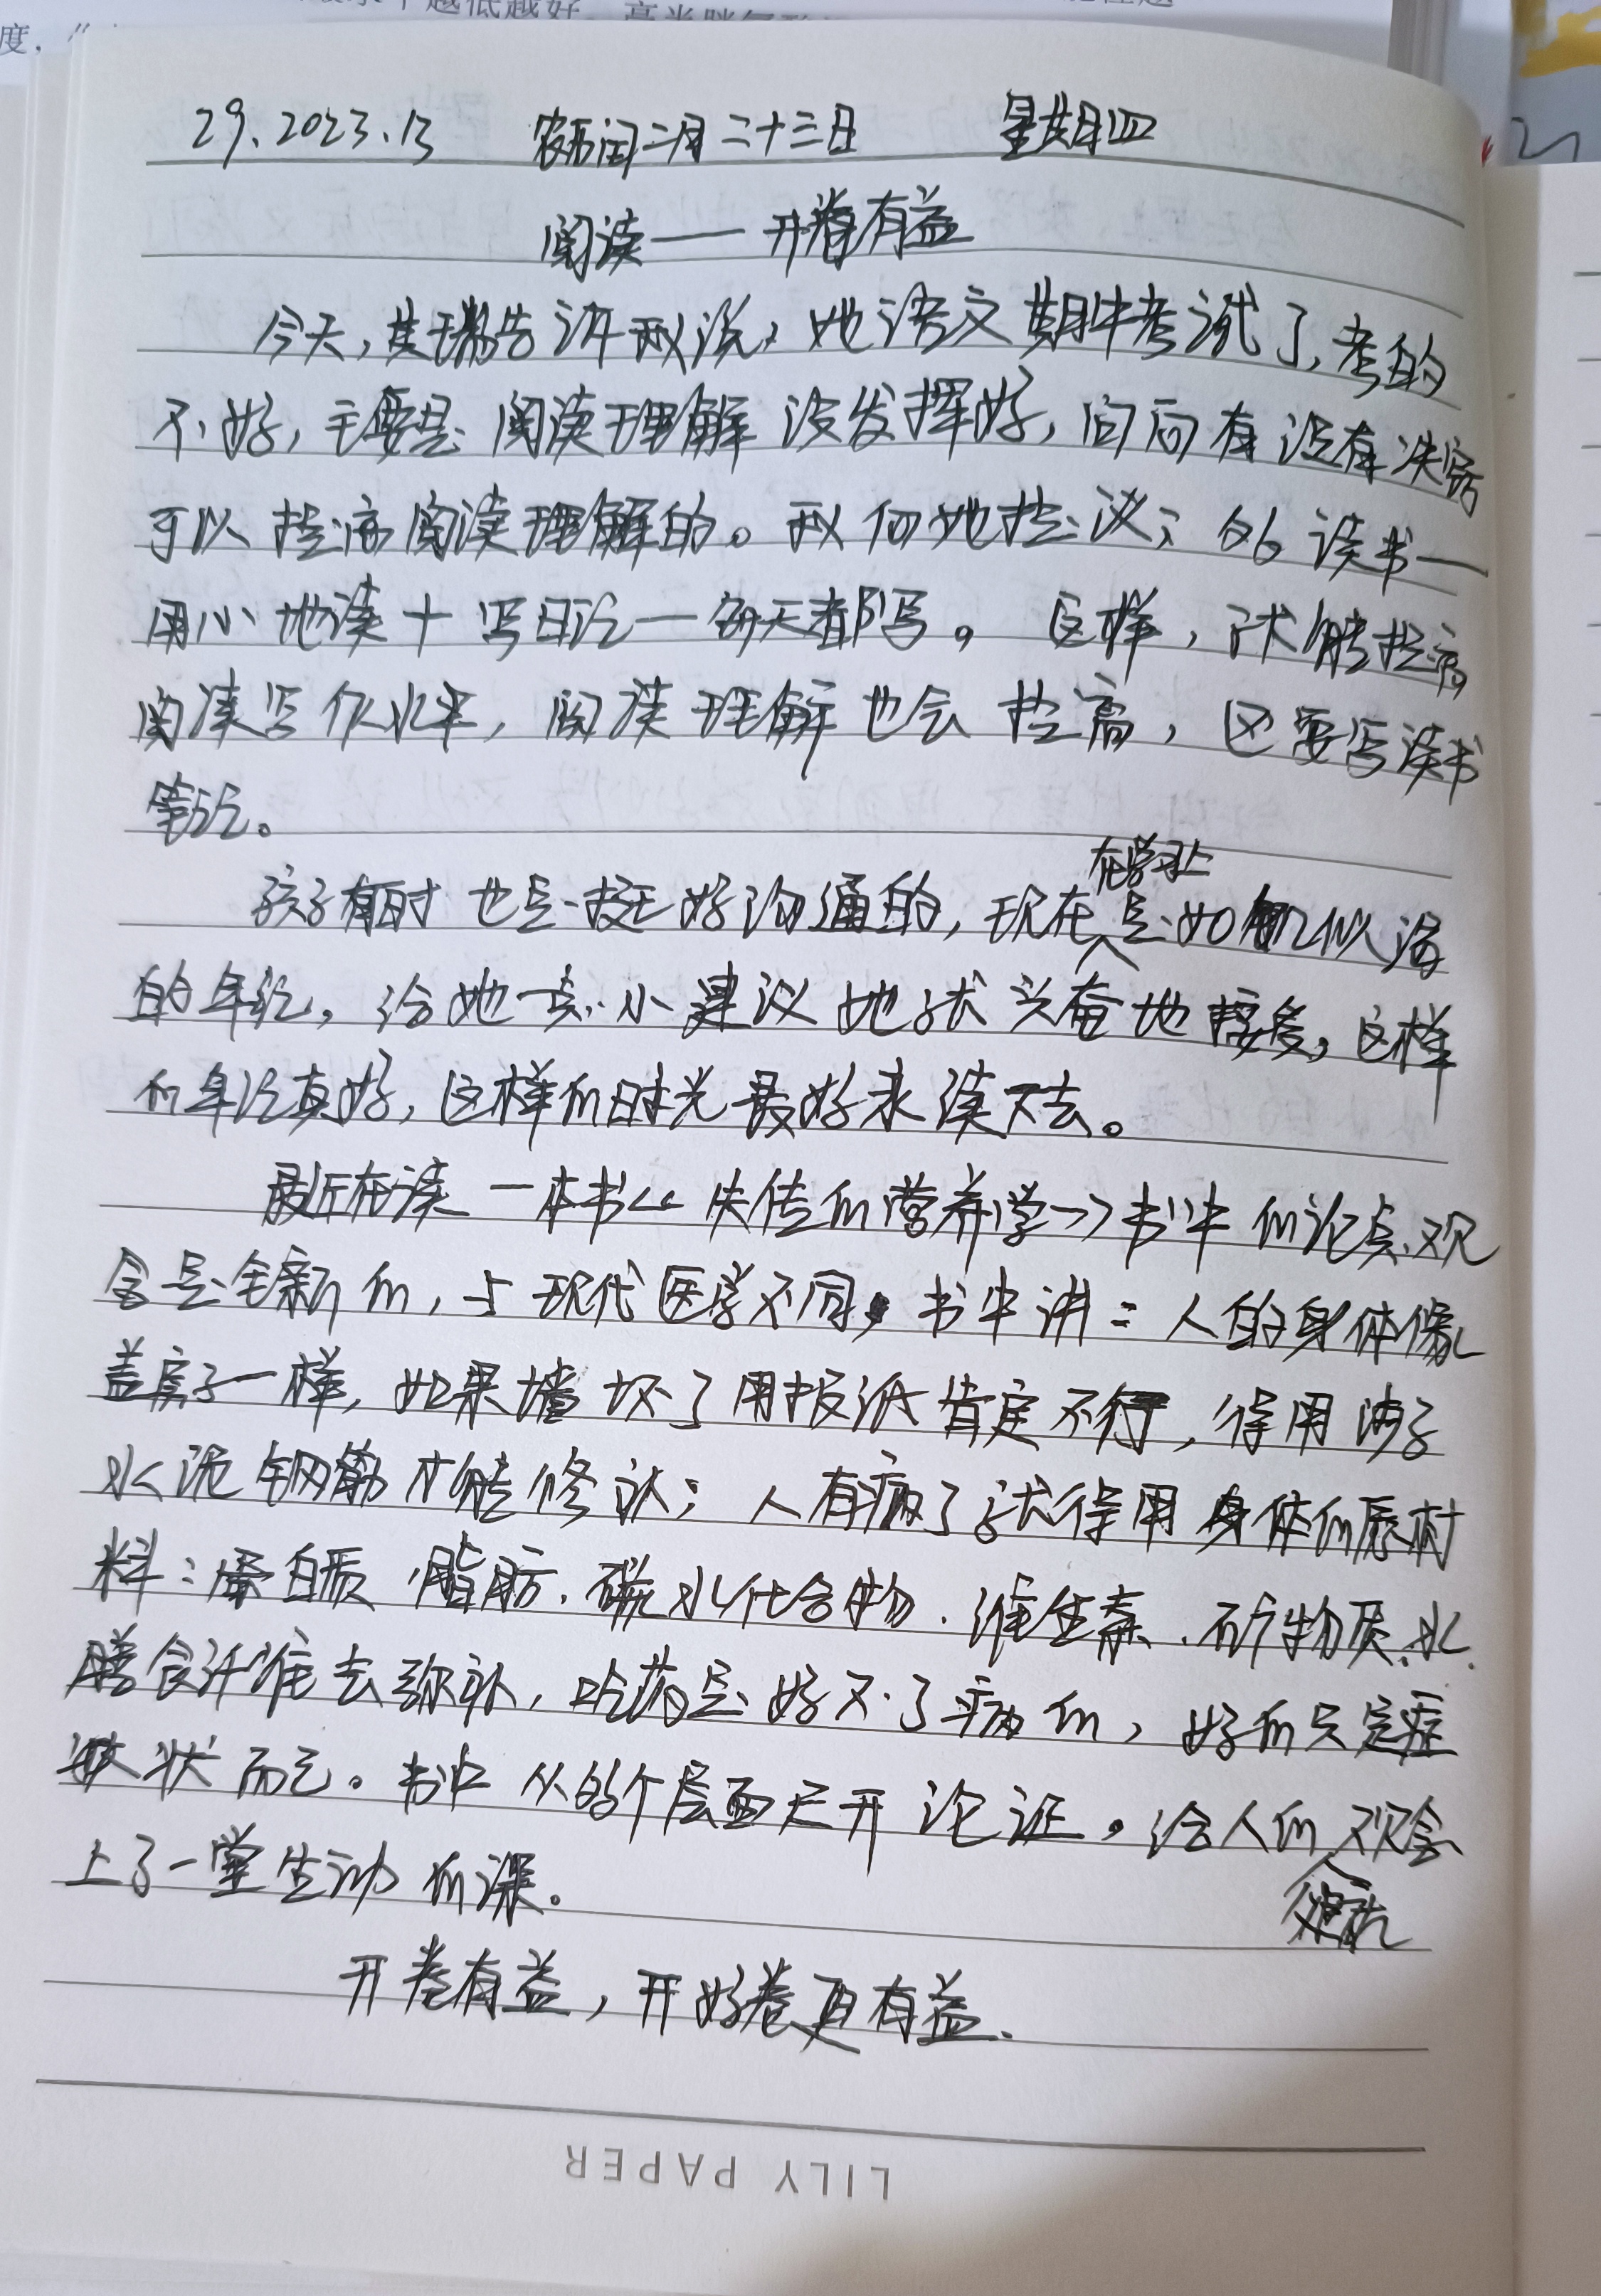 29. 2023. 13 农历闰二月二十三日 星期四
阅读——开卷有益
今天,告诉我说,她语文期中考试了,考的
不好,主要是阅读理解没发挥好,问问有没有决窍
可以提高阅读理解的。我向她提议:多读书—
用心地读+写日记—每天都写。这样,才能提高
阅读写作水平,阅读理解也会提高,还要写读书
笔记。
孩子有时也是挺好沟通的,现在在学习上是如饥似渴
的年纪,给她一点小建议她就兴奋地接受,这样
的年纪真好,这样的时光最好永续下去。
最近在读一本书《失传的营养学》书中的论点、观
念是全新的,与现代医学不同,书中讲:人的身体像
盖房子一样,如果墙坏了用报纸肯定不行,得用沙子
水泥钢筋才能修补;人有病了就得用身体的原材
料:蛋白质、脂肪、碳水化合物、维生素、矿物质、水.
膳食纤维去弥补,吃药是好不了病的,好的只是症
状而已。书中从多个层面展开论证。给人的观念
上了一堂生动的课。
开卷有益,开好卷更有益.
LILY PAPER